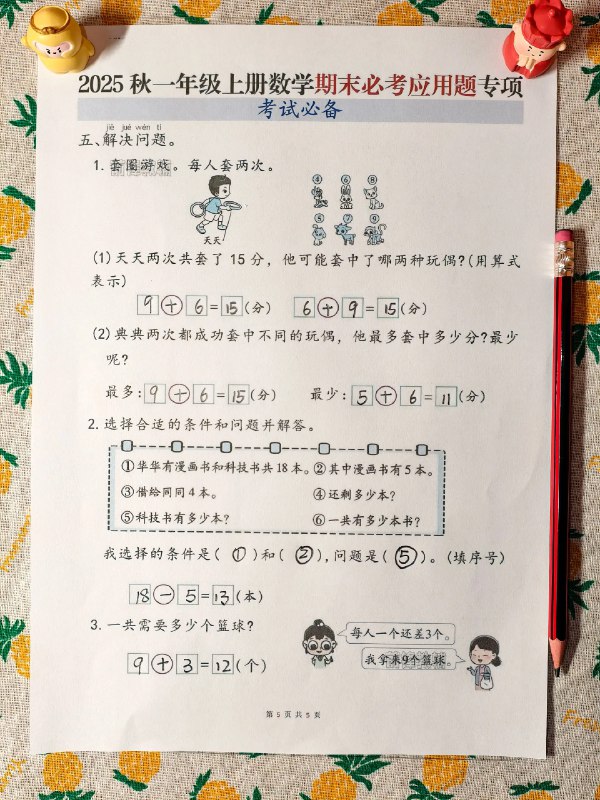 2025秋一年级上册数学期末必考应用题专项
考试必备
jiě jué wèn tí
五、解决问题。
1. 套圈游戏。每人套两次。
④ ⑥ ⑧
天天
⑤ ⑦ ⑨
(1)天天两次共套了15分，他可能套中了哪两种玩偶?(用算式
表示)
9+6=15(分) 6+9=15(分)
(2)典典两次都成功套中不同的玩偶，他最多套中多少分?最少
呢?
最多:9+6=15(分) 最少:5+6=11(分)
2. 选择合适的条件和问题并解答。
①华华有漫画书和科技书共18本。②其中漫画书有5本。
③借给同同4本。 ④还剩多少本?
⑤科技书有多少本? ⑥一共有多少本书?
我选择的条件是(①)和(②),问题是(⑤)。(填序号)
18-5=13(本)
3. 一共需要多少个篮球?
每人一个还差3个。
我拿来9个篮球。
9+3=12(个)
第5页共5页